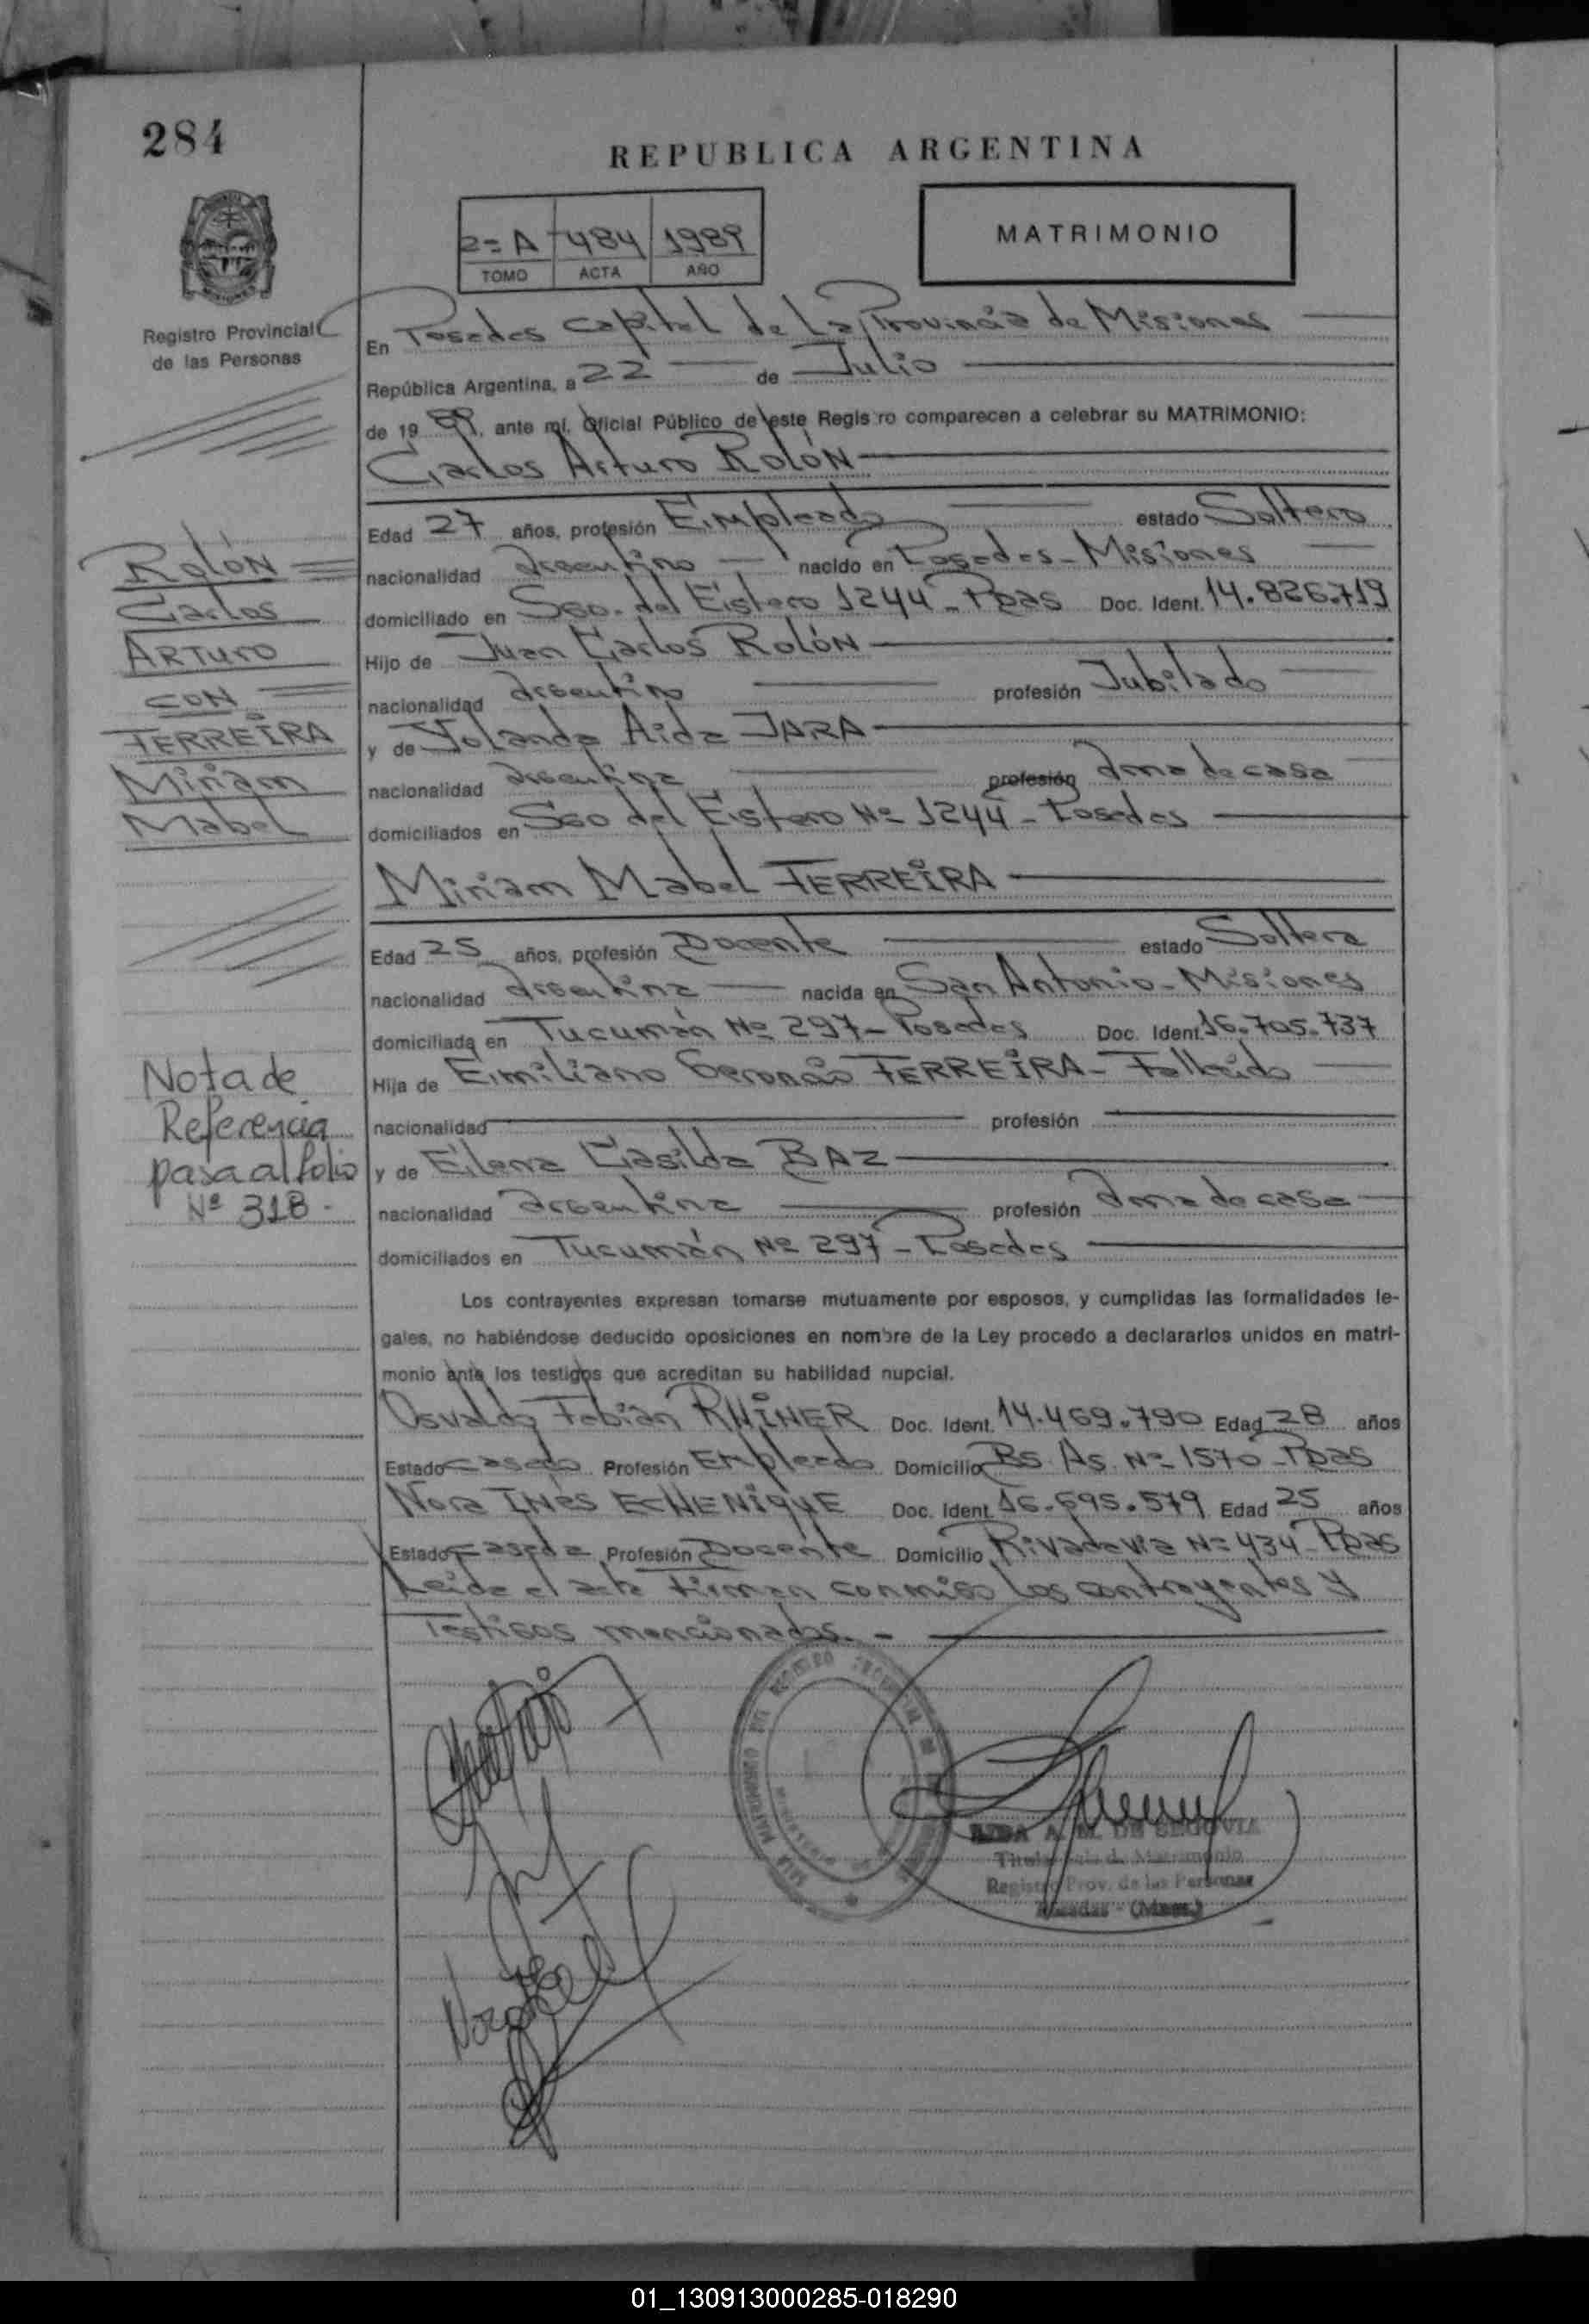 284
REPUBLICA ARGENTINA
2º A 484 1989
TOMO ACTA AÑO
MATRIMONIO
Registro Provincial
de las Personas
En Posadas Capital de La Provincia de Misiones
República Argentina, a 22 de Julio
de 19 89, ante mí, Oficial Público de este Registro comparecen a celebrar su MATRIMONIO:
Carlos Arturo ROLÓN
Edad 27 años, profesión Empleado estado Soltero
nacionalidad Argentino nacido en Posadas - Misiones
domiciliado en Sgo. del Estero 1244 - Pdas Doc. Ident. 14.826.719
Hijo de Juan Carlos ROLÓN
nacionalidad Argentino profesión Jubilado
y de Yolanda Aida JARA
nacionalidad Argentina profesión Ama de casa
domiciliados en Sgo del Estero Nº 1244 - Posadas
Miriam Mabel FERREIRA
Edad 25 años, profesión Docente estado Soltera
nacionalidad Argentina nacida en San Antonio - Misiones
domiciliada en Tucumán Nº 297 - Posadas Doc. Ident. 16.705.737
Hija de Emiliano FERREIRA - Fallecido
nacionalidad profesión
y de Elena Casilda BAZ
nacionalidad Argentina profesión Ama de casa
domiciliados en Tucumán Nº 297 - Posadas
Los contrayentes expresan tomarse mutuamente por esposos, y cumplidas las formalidades le-
gales, no habiéndose deducido oposiciones en nombre de la Ley procedo a declararlos unidos en matri-
monio ante los testigos que acreditan su habilidad nupcial.
Osvaldo Fabián RHINER Doc. Ident. 14.469.790 Edad 28 años
Estado Casado Profesión Empleado Domicilio Bs. As. Nº 1570 - Pdas
Nora Inés ECHENIQUE Doc. Ident. 16.695.579 Edad 25 años
Estado Casada Profesión Docente Domicilio Rivadavia Nº 434 - Pdas
Leída el acta firman conmigo los contrayentes y
Testigos mencionados. -
ROLÓN
Carlos
ARTURO
CON
FERREIRA
Miriam
Mabel
Nota de
Referencia
pasa al folio
Nº 318 -
A. M. DE SEGOVIA
Titular Sala de Matrimonio
Registro Prov. de las Personas
Posadas - (Mnes.)
01_130913000285-018290